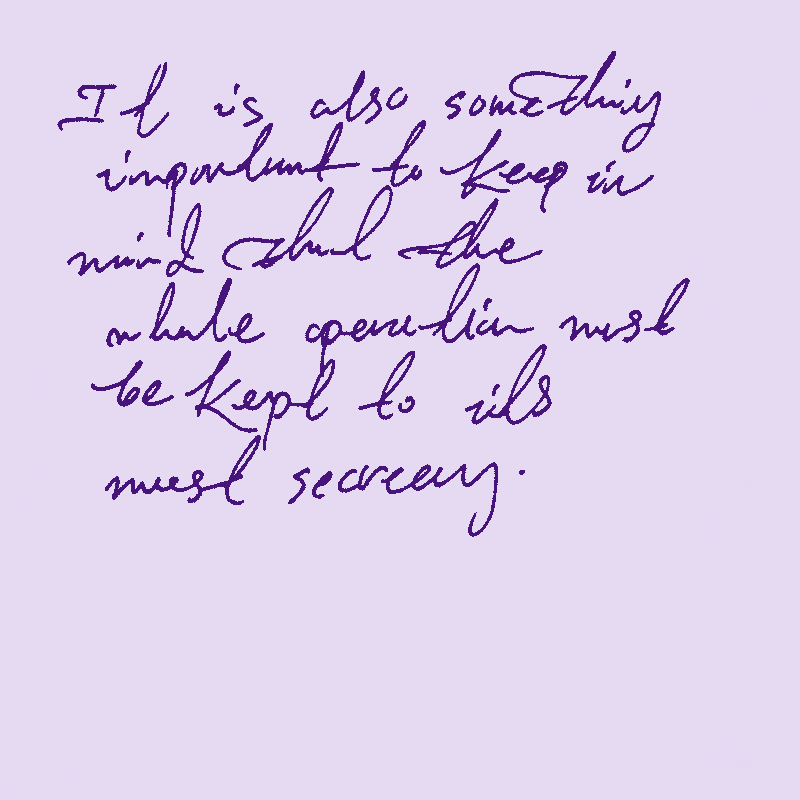 It is also something
important to keep in
mind that the
whole operation must
be kept to its
must secrecy.